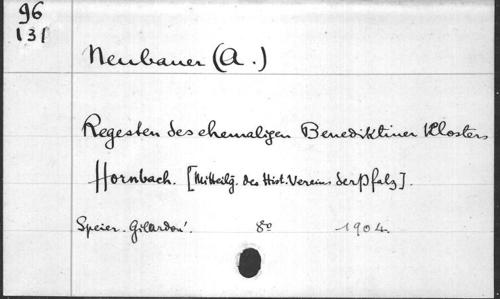 96
131
Neubauer (A.)
Regesten des ehemaligen Benediktiner Klosters
Hornbach. [Mitteilg. des Hist. Vereins der Pfalz].
Speier. Gilardoné. 8º 1904.